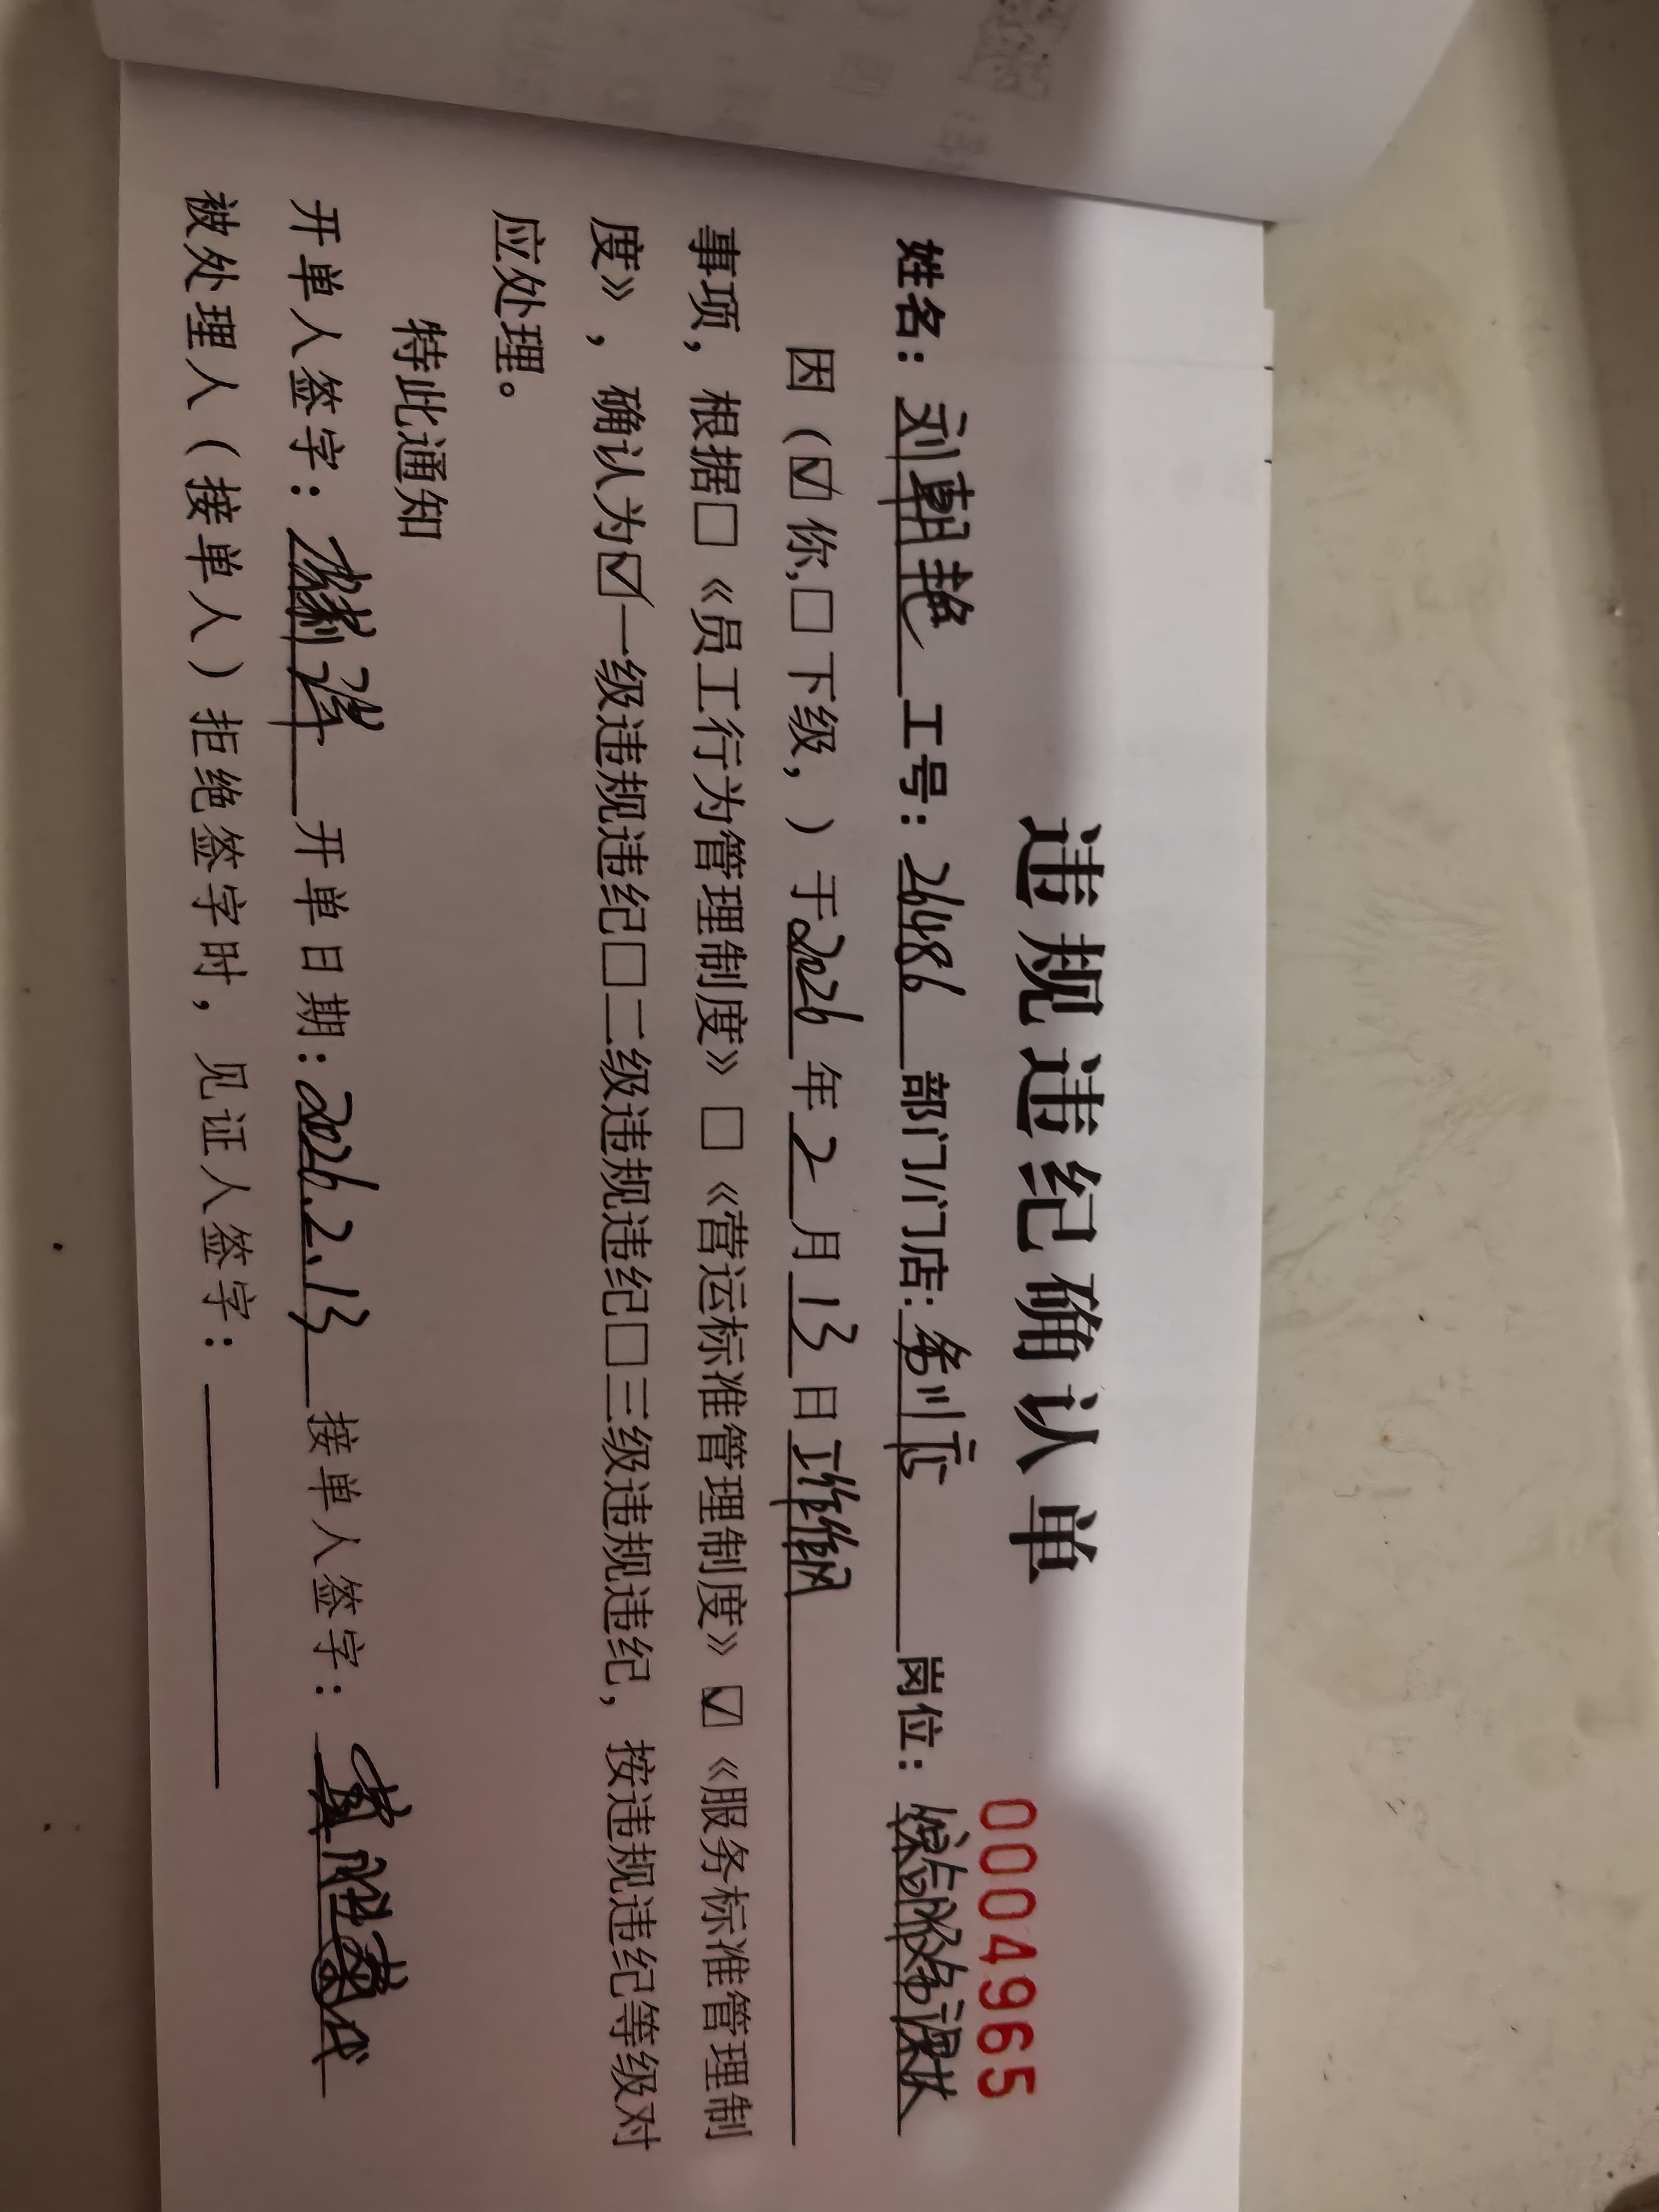 违规违纪确认单
0004965
姓名：刘朝艳 工号：26486 部门/门店：利店 岗位：课长
因（☑你,□下级，）于2026年2月13日工作纰
事项，根据□《员工行为管理制度》□《营运标准管理制度》☑《服务标准管理制
度》，确认为☑一级违规违纪□二级违规违纪□三级违规违纪，按违规违纪等级对
应处理。
特此通知
开单人签字： 开单日期：2026.2.13 接单人签字：
被处理人（接单人）拒绝签字时，见证人签字：